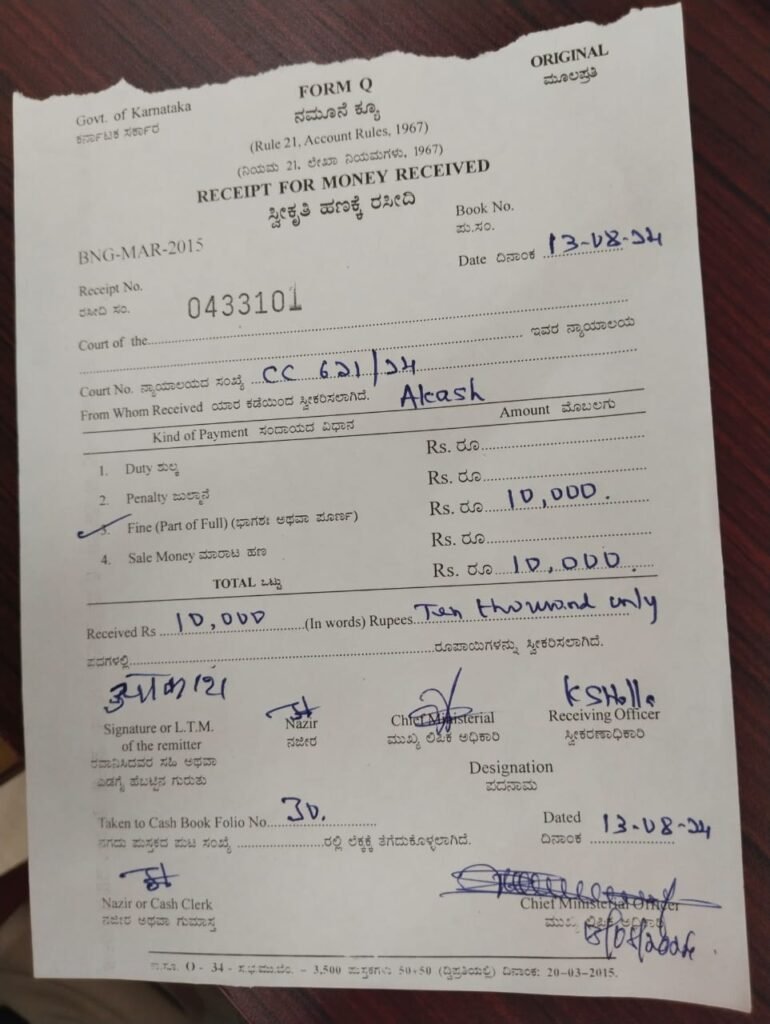 Govt. of Karnataka
ಕರ್ನಾಟಕ ಸರ್ಕಾರ
FORM Q
ನಮೂನೆ ಕ್ಯೂ
ORIGINAL
ಮೂಲಪ್ರತಿ
(Rule 21, Account Rules, 1967)
(ನಿಯಮ 21, ಲೇಖಾ ನಿಯಮಗಳು, 1967)
RECEIPT FOR MONEY RECEIVED
ಸ್ವೀಕೃತಿ ಹಣಕ್ಕೆ ರಸೀದಿ
BNG-MAR-2015
Book No.
ಪು.ಸಂ.
Receipt No.
ರಸೀದಿ ಸಂ. 0433101
Date ದಿನಾಂಕ 13-08-24
Court of the
ಇವರ ನ್ಯಾಯಾಲಯ
Court No. ನ್ಯಾಯಾಲಯದ ಸಂಖ್ಯೆ CC 621/24
From Whom Received ಯಾರ ಕಡೆಯಿಂದ ಸ್ವೀಕರಿಸಲಾಗಿದೆ. Akash
Kind of Payment ಸಂದಾಯದ ವಿಧಾನ Amount ಮೊಬಲಗು
1. Duty ಶುಲ್ಕ Rs. ರೂ
2. Penalty ಜುಲ್ಮಾನೆ Rs. ರೂ
3. Fine (Part of Full) (ಭಾಗಶಃ ಅಥವಾ ಪೂರ್ಣ) Rs. ರೂ 10,000.
4. Sale Money ಮಾರಾಟ ಹಣ Rs. ರೂ
TOTAL ಒಟ್ಟು Rs. ರೂ 10,000.
Received Rs 10,000 (In words) Rupees Ten thousand only
ಪದಗಳಲ್ಲಿ ರೂಪಾಯಿಗಳನ್ನು ಸ್ವೀಕರಿಸಲಾಗಿದೆ.
आकाश
Signature or L.T.M.
of the remitter
ರವಾನಿಸಿದವರ ಸಹಿ ಅಥವಾ
ಎಡಗೈ ಹೆಬಟ್ಟಿನ ಗುರುತು
Nazir
ನಜೀರ
Chief Ministerial
ಮುಖ್ಯ ಲಿಪಿಕ ಅಧಿಕಾರಿ
Receiving Officer
ಸ್ವೀಕರಣಾಧಿಕಾರಿ
Designation
ಪದನಾಮ
Taken to Cash Book Folio No. 30.
ನಗದು ಪುಸ್ತಕದ ಪುಟ ಸಂಖ್ಯೆ ರಲ್ಲಿ ಲೆಕ್ಕಕ್ಕೆ ತೆಗೆದುಕೊಳ್ಳಲಾಗಿದೆ.
Dated
ದಿನಾಂಕ 13-08-24
Nazir or Cash Clerk
ನಜೀರ ಅಥವಾ ಗುಮಾಸ್ತ
Chief Ministerial Officer
ಮುಖ್ಯ ಲಿಪಿಕ ಅಧಿಕಾರಿ
O - 34 - ಸ.ಭ.ಮು.ಬೆಂ. - 3,500 ಪುಸ್ತಕಗಳು 50+50 (ದ್ವಿಪ್ರತಿಯಲ್ಲಿ) ದಿನಾಂಕ: 20-03-2015.